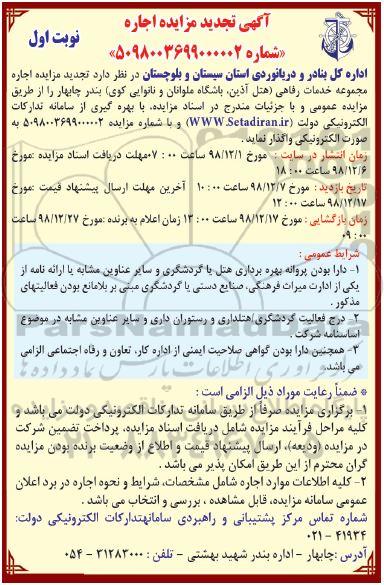 آگهی تجدید مزایده اجاره
نوبت اول
«شماره ۵۰۹۸۰۰۳۶۹۹۰۰۰۰۰۲»
اداره کل بنادر و دریانوردی استان سیستان و بلوچستان در نظر دارد تجدید مزایده اجاره
مجموعه خدمات رفاهی (هتل آذین، باشگاه ملوانان و نانوایی کوی) بندر چابهار را از طریق
مزایده عمومی و با جزئیات مندرج در اسناد مزایده، با بهره گیری از سامانه تدارکات
الکترونیکی دولت (WWW.Setadiran.ir) و با شماره مزایده ۵۰۹۸۰۰۳۶۹۹۰۰۰۰۰۲ به
صورت الکترونیکی واگذار نماید.
زمان انتشار در سایت : مورخ ۹۸/۱۲/۱ ساعت ۰۰ : ۰۷مهلت دریافت اسناد مزایده :مورخ
۹۸/۱۲/۶ ساعت ۰۰ : ۱۸
تاریخ بازدید : مورخ ۹۸/۱۲/۷ ساعت ۰۰ : ۱۰ آخرین مهلت ارسال پیشنهاد قیمت :مورخ
۹۸/۱۲/۱۷ ساعت ۰۰ : ۱۲
زمان بازگشایی : مورخ ۹۸/۱۲/۱۷ ساعت ۰۰ : ۱۳ زمان اعلام به برنده :مورخ ۹۸/۱۲/۲۷ ساعت
۰۰ : ۰۹
شرایط عمومی :
۱- دارا بودن پروانه بهره برداری هتل یا گردشگری و سایر عناوین مشابه یا ارائه نامه از
یکی از ادارت میراث فرهنگی، صنایع دستی یا گردشگری مبنی بر بلامانع بودن فعالیتهای
مذکور .
۲- درج فعالیت گردشگری هتلداری و رستوران داری و سایر عناوین مشابه در موضوع
اساسنامه شرکت .
۳- همچنین دارا بودن گواهی صلاحیت ایمنی از اداره کار، تعاون و رفاه اجتماعی الزامی
می باشد.
* ضمناً رعایت موراد ذیل الزامی است :
۱- برگزاری مزایده صرفاً از طریق سامانه تدارکات الکترونیکی دولت می باشد و
کلیه مراحل فرآیند مزایده شامل دریافت اسناد مزایده، پرداخت تضمین شرکت
در مزایده (ودیعه)، ارسال پیشنهاد قیمت و اطلاع از وضعیت برنده بودن مزایده
گران محترم از این طریق امکان پذیر می باشد .
۲- کلیه اطلاعات موارد اجاره شامل مشخصات، شرایط و نحوه اجاره در برد اعلان
عمومی سامانه مزایده، قابل مشاهده ، بررسی و انتخاب می باشد .
شماره تماس مرکز پشتیبانی و راهبردی سامانهتدارکات الکترونیکی دولت:
۴۱۹۳۴ - ۰۲۱
آدرس :چابهار - اداره بندر شهید بهشتی - تلفن : ۳۱۲۸۳۰۰۰ - ۰۵۴